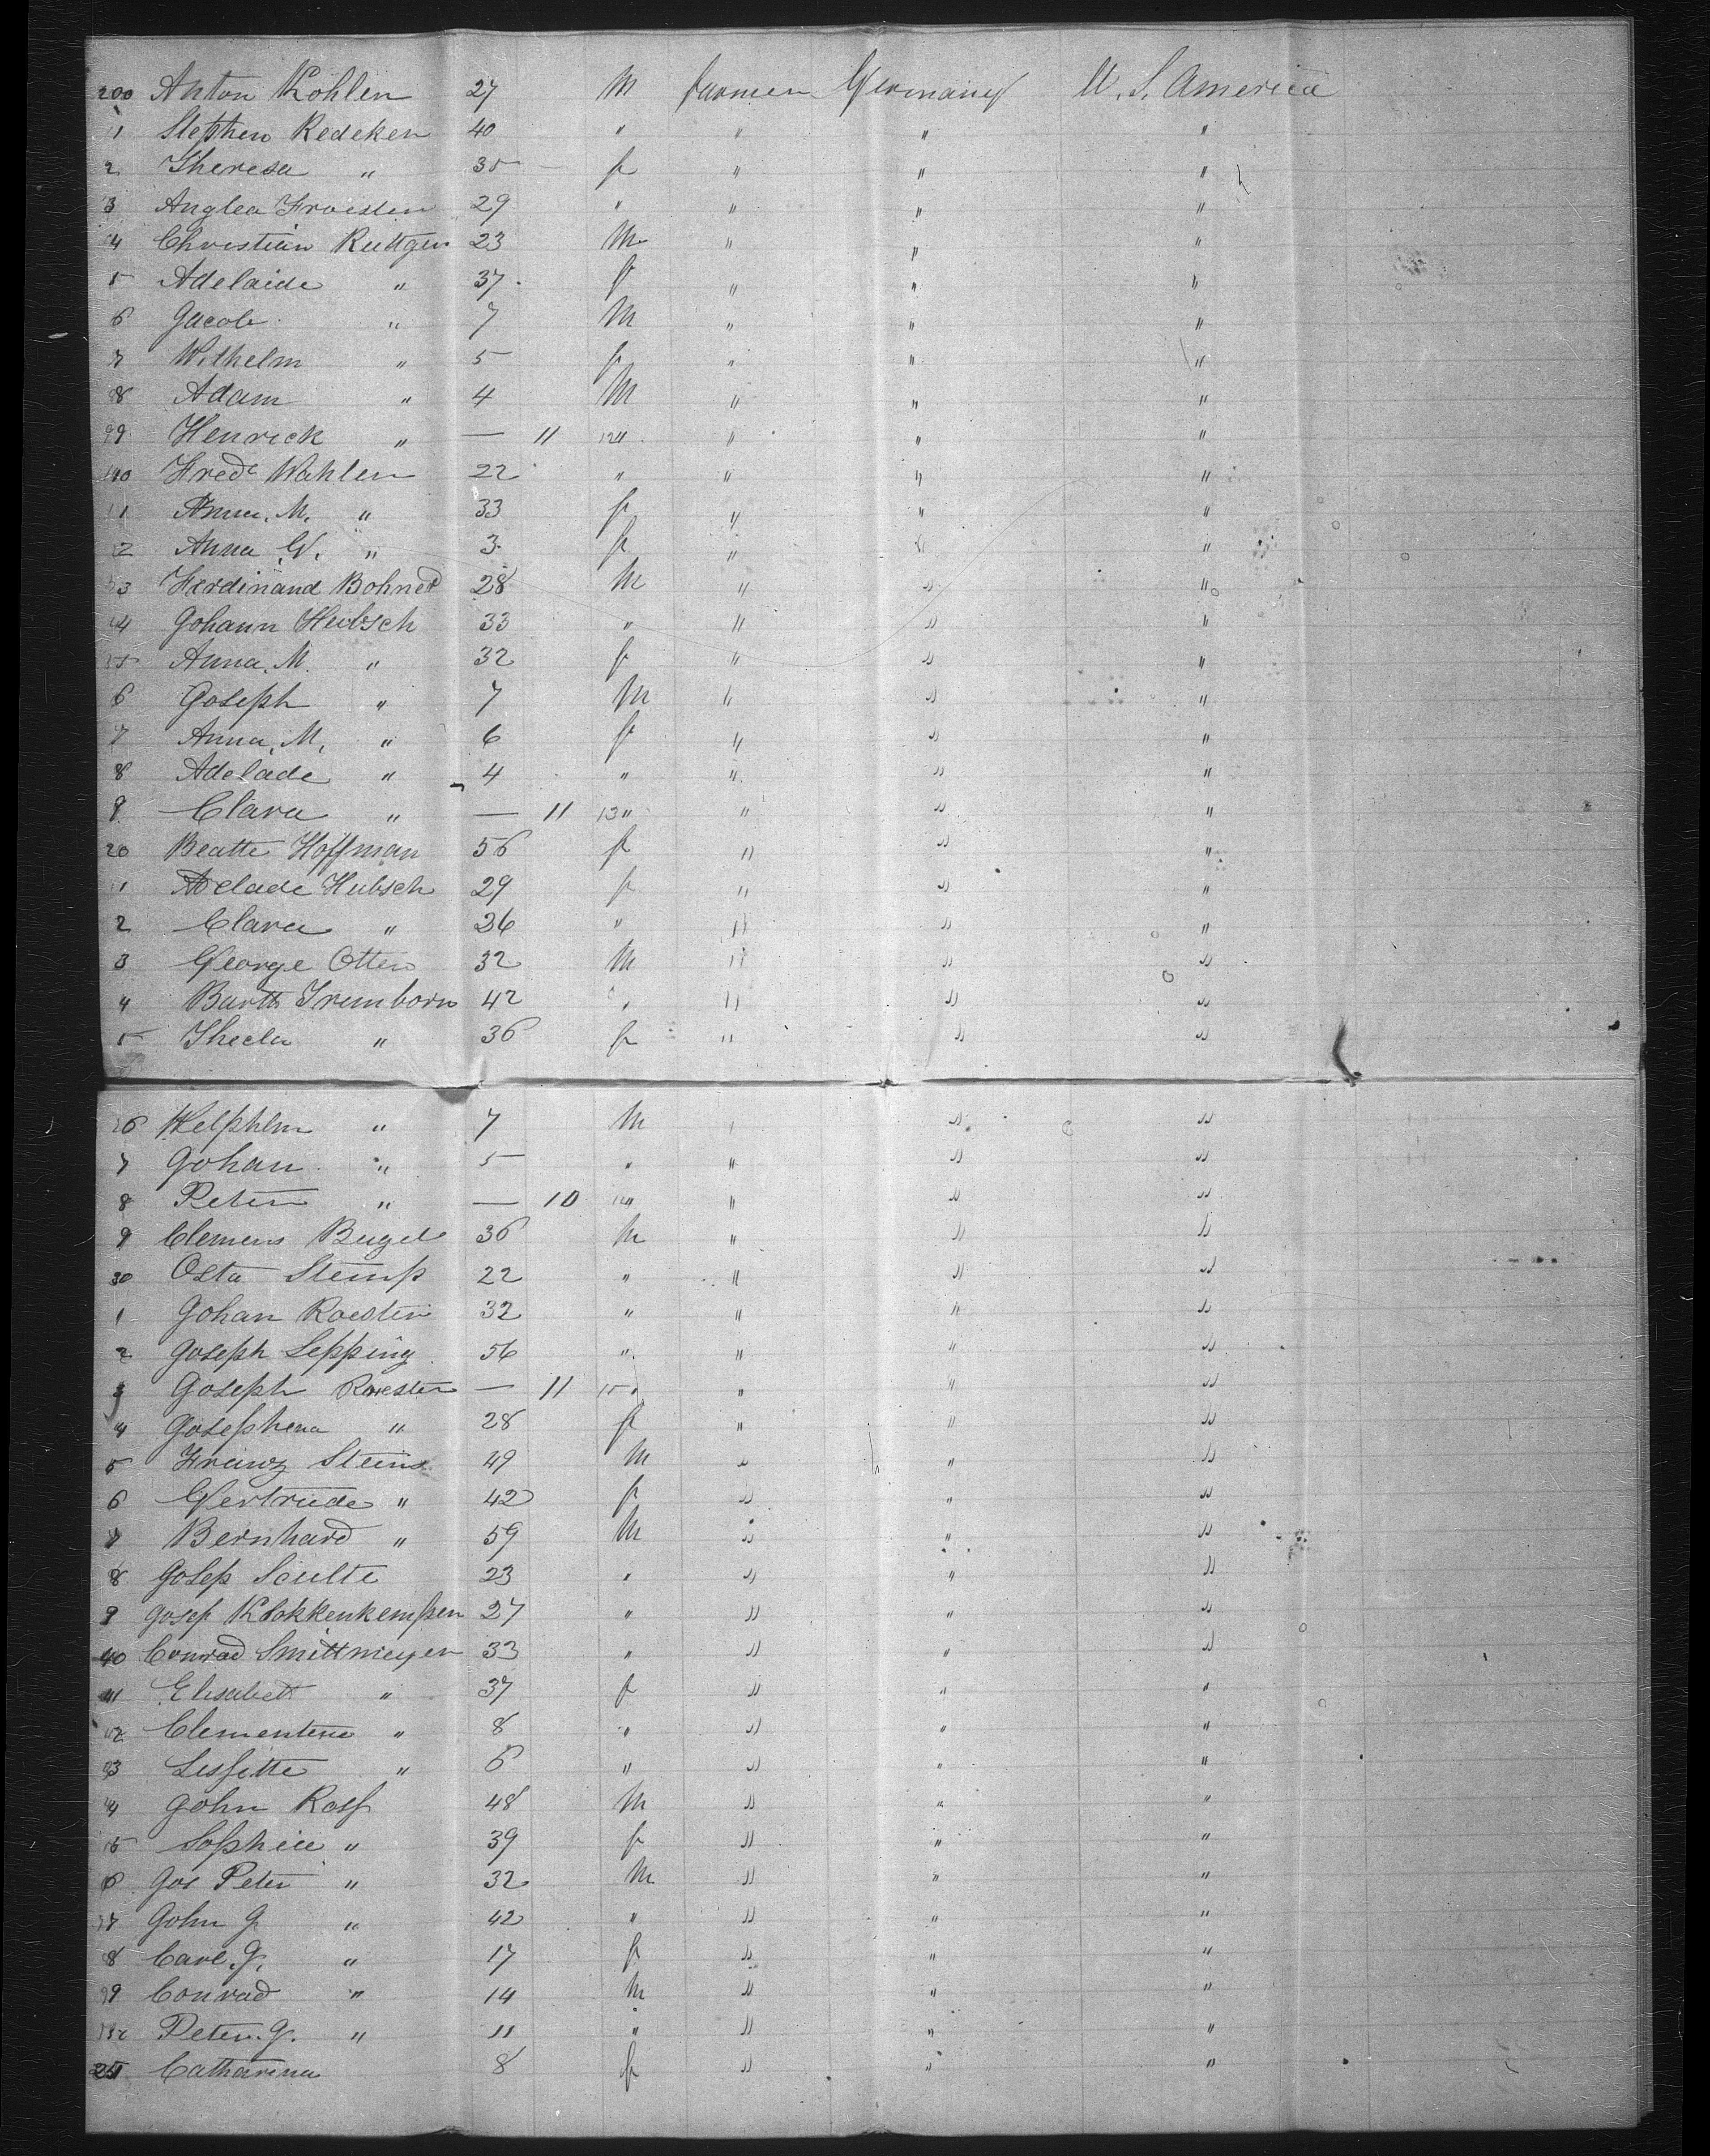 200 Anton Kohlen 27 M farmer Germany U. S. America
1 Stephen Redeken 40 " " " "
2 Theresa " 35 f " " "
3 Anglea Froesten 29 " " " "
4 Christian Ruttgen 23 M " " "
5 Adelaide " 37 f " " "
6 Jacob " 7 M " " "
7 Wilhelm " 5 f " " "
8 Adam " 4 M " " "
9 Henrick " — 11 12 " " " "
10 Fredc Wahlen 22 " " " "
11 Anna. M. " 33 f " " "
12 Anna G. " 3 f " " "
13 Ferdinand Bohned 28 M " " "
14 Johann Hubsch 33 " " " "
15 Anna. M. " 32 f " " "
6 Joseph " 7 M " " "
7 Anna. M. " 6 f " " "
8 Adelade " 4 " " " "
9 Clara " — 11 12 " " " "
20 Beatte Hoffman 56 f " " "
1 Adelade Hubsch 29 f " " "
2 Clara " 26 " " " "
3 George Otten 32 M " " "
4 Barth Trumborn 42 " " " "
5 Thecla " 36 f " " "
26 Welphlm " 7 M " " "
7 Johan " 5 " " " "
8 Peter " — 10 12 " " " "
9 Clemens Bugel 36 M " " "
30 Osta Stemp 22 " " " "
1 Johan Roesten 32 " " " "
2 Joseph Lepping 56 " " " "
3 Joseph Roesten — 11 15 " " " "
4 Josephena " 28 f " " "
5 Franz Steins 49 M " " "
6 Gertrude " 42 f " " "
7 Bernhard " 59 M " " "
8 Josep Sculte 23 " " " "
9 Josep Klokkenkempen 27 " " " "
40 Conrad Smittmeyer 33 " " " "
41 Elisabett " 37 f " " "
42 Clementene " 8 " " " "
43 Lissette " 6 " " " "
44 John Rolf 48 M " " "
45 Sophie " 39 f " " "
6 Jos Peter " 32 M " " "
47 John J " 42 " " " "
8 Carl. J. " 17 f " " "
49 Conrad " 14 M " " "
Peter. J. " 11 " " " "
251 Catharina 8 f " " "